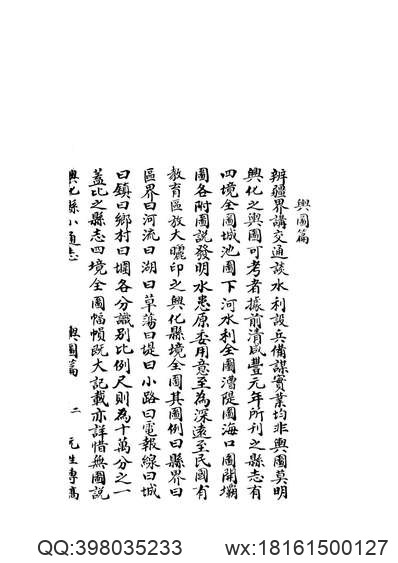 輿圖篇
辨疆界講交通談水利設兵備謀實業均非輿圖莫明
興化之輿圖可考者據前清咸豐元年所刊之縣志有
四境全圖城池圖下河水利全圖漕隄圖海口圖開壩
圖各附圖說發明水患原委用意至為深遠至民國有
教育區放大曬印之興化縣境全圖其圖例曰縣界曰
區界曰河流曰湖曰草蕩曰堤曰小路曰電報線曰城
曰鎮曰鄉村曰垜各分識別比例尺則為十萬分之一
蓋比之縣志四境全圖幅幀既大記載亦詳惜無圖說
興化縣小通志 輿圖篇 二 元生專稿
QQ:398035233 wx:18161500127